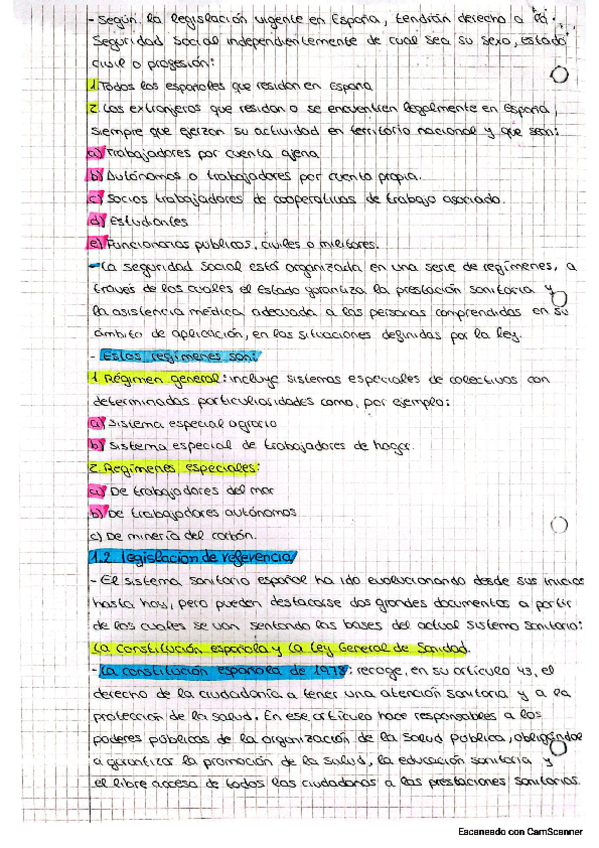 - Según la legislación vigente en España, tendrán derecho a la
Seguridad Social independientemente de cual sea su sexo, estado
civil o profesión:
1. Todos los españoles que residan en España
2. Los extranjeros que residan o se encuentren legalmente en España,
siempre que ejerzan su actividad en territorio nacional y que sean:
a) Trabajadores por cuenta ajena
b) Autónomos o trabajadores por cuenta propia.
c) Socios trabajadores de cooperativas de trabajo asociado.
d) Estudiantes
e) Funcionarios públicos, civiles o militares.
- La seguridad social está organizada en una serie de regímenes, a
través de los cuales el Estado garantiza la prestación sanitaria y
la asistencia médica adecuada a las personas comprendidas en su
ámbito de aplicación, en las situaciones definidas por la ley.
- Estos regímenes son:
1. Régimen general: incluye sistemas especiales de colectivos con
determinadas particularidades como, por ejemplo:
a) Sistema especial agrario
b) Sistema especial de trabajadores de hogar.
2. Regímenes especiales:
a) De trabajadores del mar
b) De trabajadores autónomos
c) De minería del carbón.
1.2. legislación de referencia
- El sistema sanitario español ha ido evolucionando desde sus inicios
hasta hoy, pero pueden destacarse dos grandes documentos a partir
de los cuales se van sentando las bases del actual sistema sanitario:
La constitución española y la Ley General de Sanidad.
- La constitución española de 1978: recoge, en su artículo 43, el
derecho de la ciudadanía a tener una atención sanitaria y a la
protección de la salud. En ese artículo hace responsables a los
poderes públicos de la organización de la salud pública, obligándoles
a garantizar la promoción de la salud, la educación sanitaria y
el libre acceso de todos los ciudadanos a las prestaciones sanitarias.
Escaneado con CamScanner